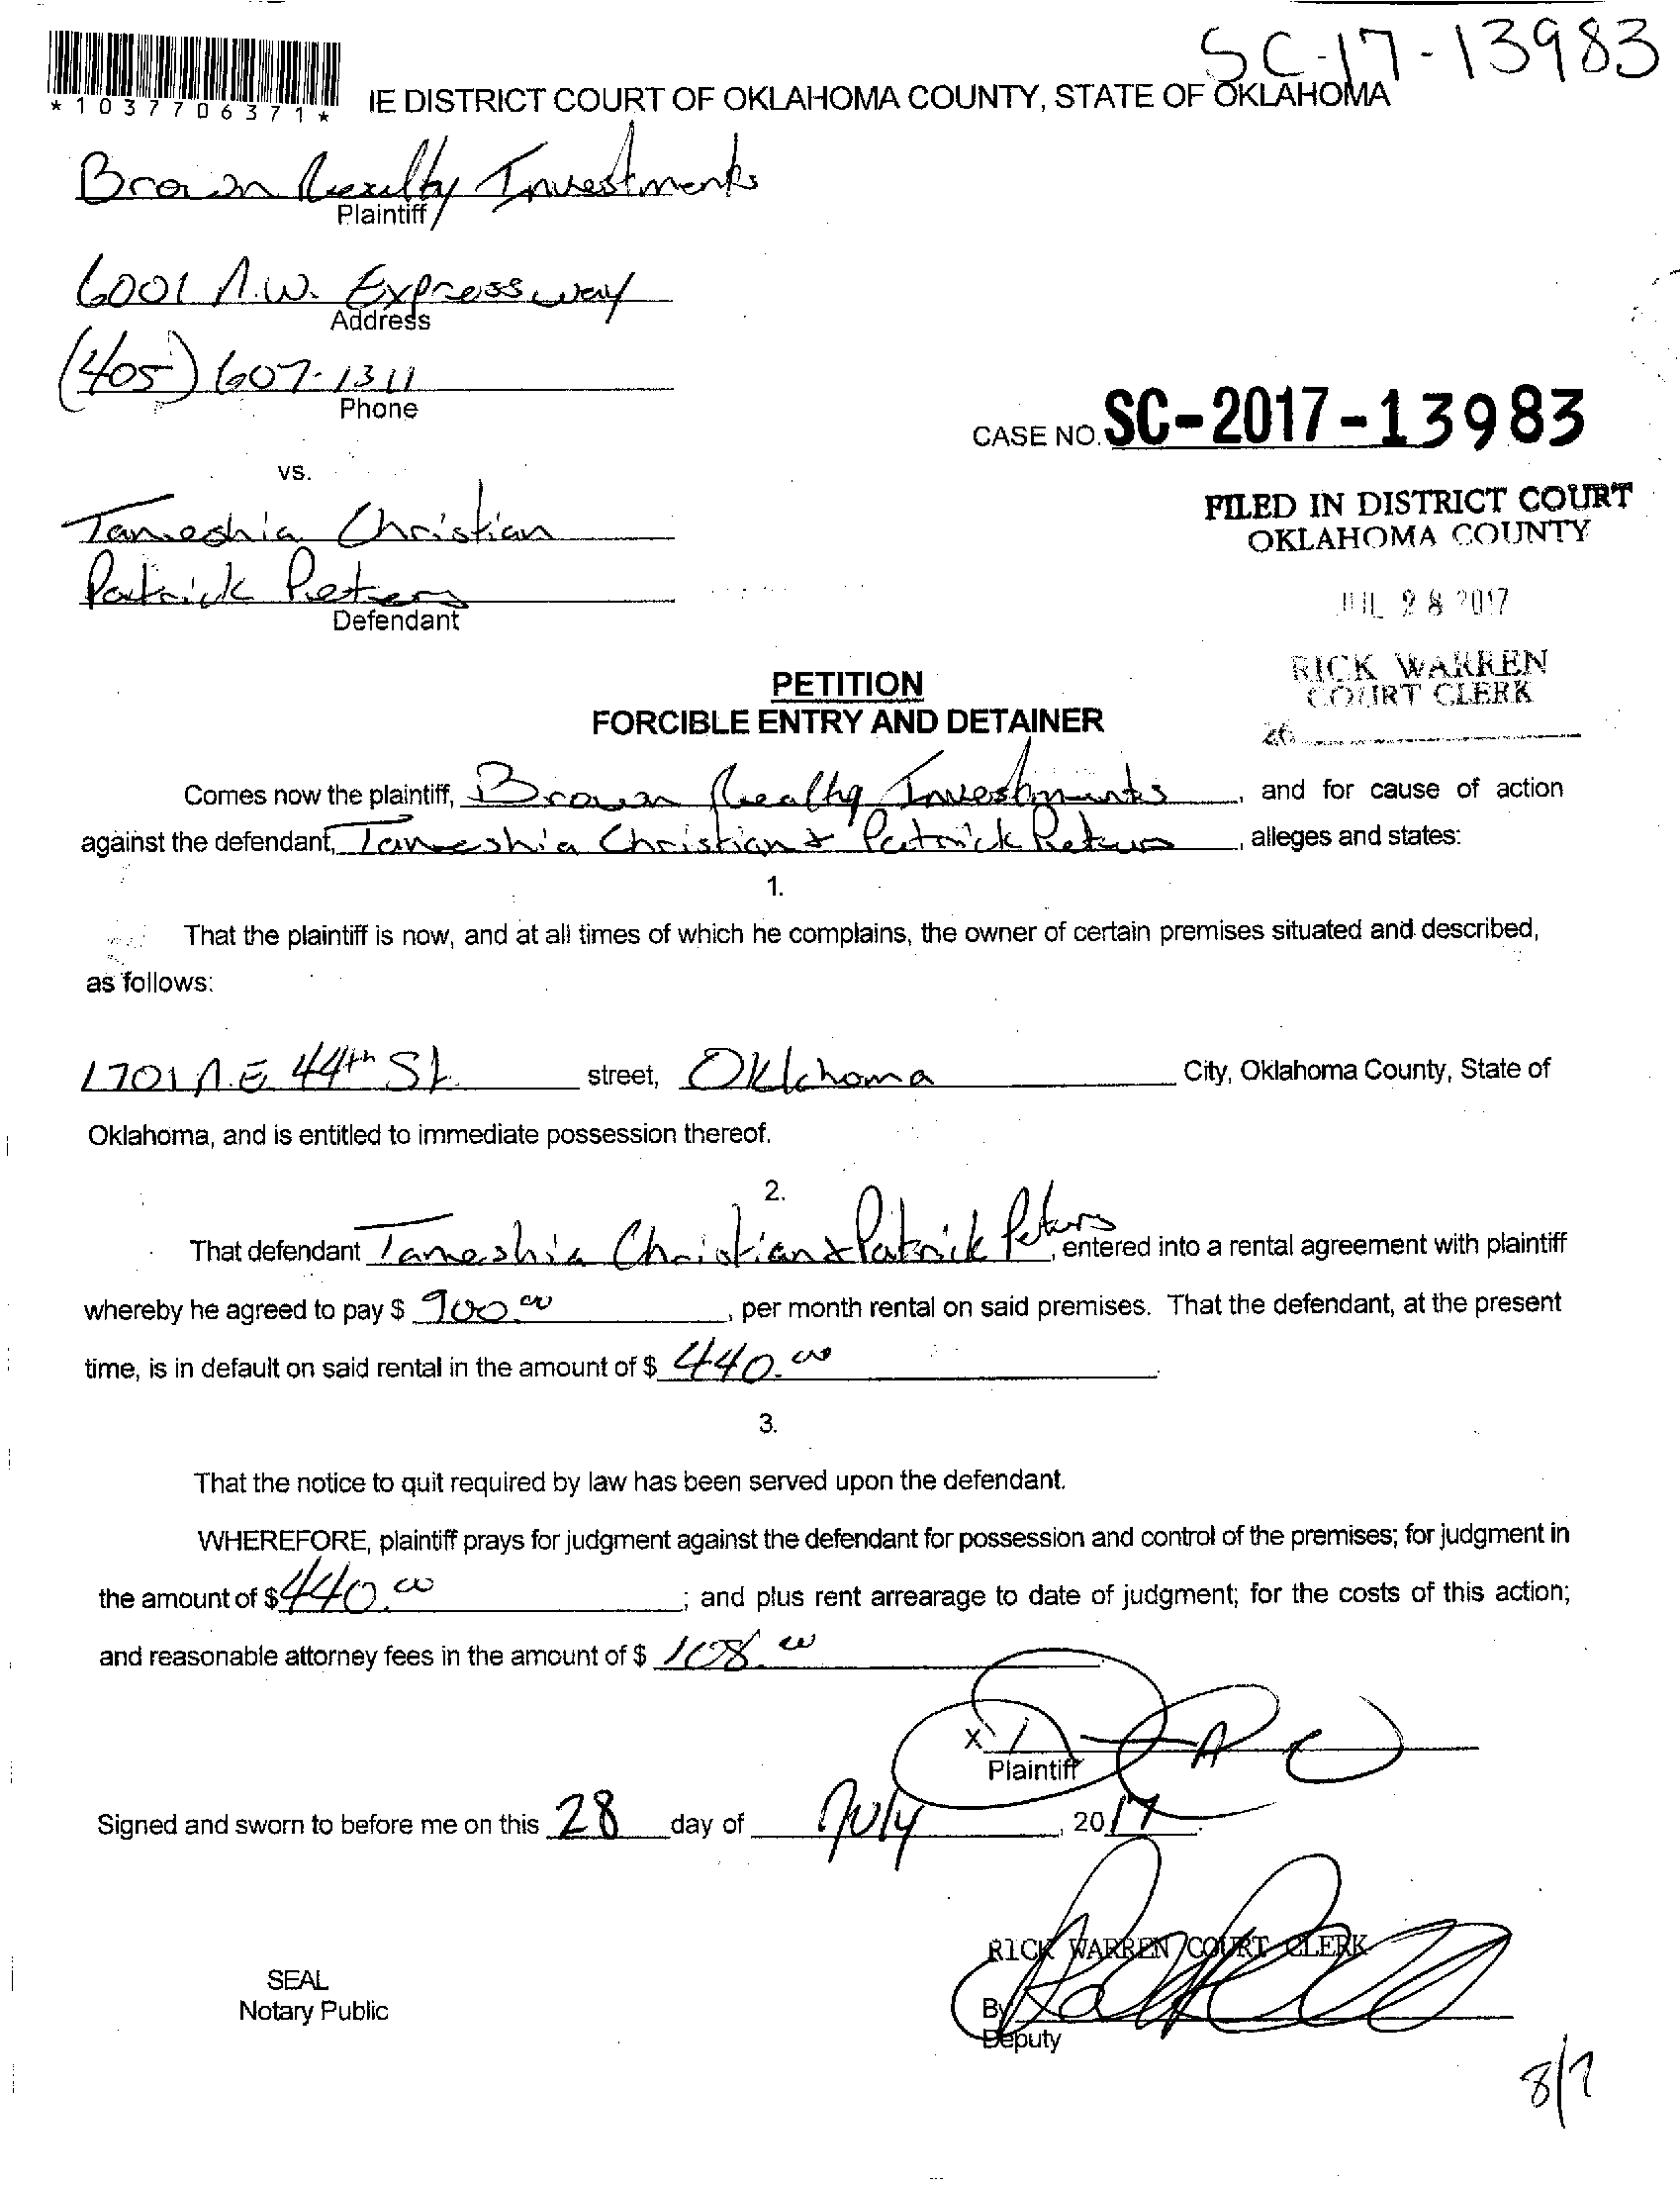 SC-17-13983
*1037706371*
IE DISTRICT COURT OF OKLAHOMA COUNTY, STATE OF OKLAHOMA
Brown Realty Investments
Plaintiff
6001 N.W. Expressway
Address
(405) 607-1311
Phone
CASE NO. SC-2017-13983
vs.
FILED IN DISTRICT COURT
OKLAHOMA COUNTY
Taneshia Christian
Patrick Peters
Defendant
JUL 28 2017
RICK WARREN
COURT CLERK
26
PETITION
FORCIBLE ENTRY AND DETAINER
Comes now the plaintiff, Brown Realty Investments, and for cause of action
against the defendant, Taneshia Christian & Patrick Peters, alleges and states:
1.
That the plaintiff is now, and at all times of which he complains, the owner of certain premises situated and described,
as follows:
1701 N.E 44th St. street, Oklahoma City, Oklahoma County, State of
Oklahoma, and is entitled to immediate possession thereof.
2.
That defendant Taneshia Christian & Patrick Peters, entered into a rental agreement with plaintiff
whereby he agreed to pay $ 900.00, per month rental on said premises. That the defendant, at the present
time, is in default on said rental in the amount of $ 440.00.
3.
That the notice to quit required by law has been served upon the defendant.
WHEREFORE, plaintiff prays for judgment against the defendant for possession and control of the premises; for judgment in
the amount of $ 440.00; and plus rent arrearage to date of judgment; for the costs of this action;
and reasonable attorney fees in the amount of $ 108.00
X
Plaintiff
Signed and sworn to before me on this 28 day of July, 2017.
RICK WARREN COURT CLERK
SEAL
Notary Public
By
Deputy
8/7